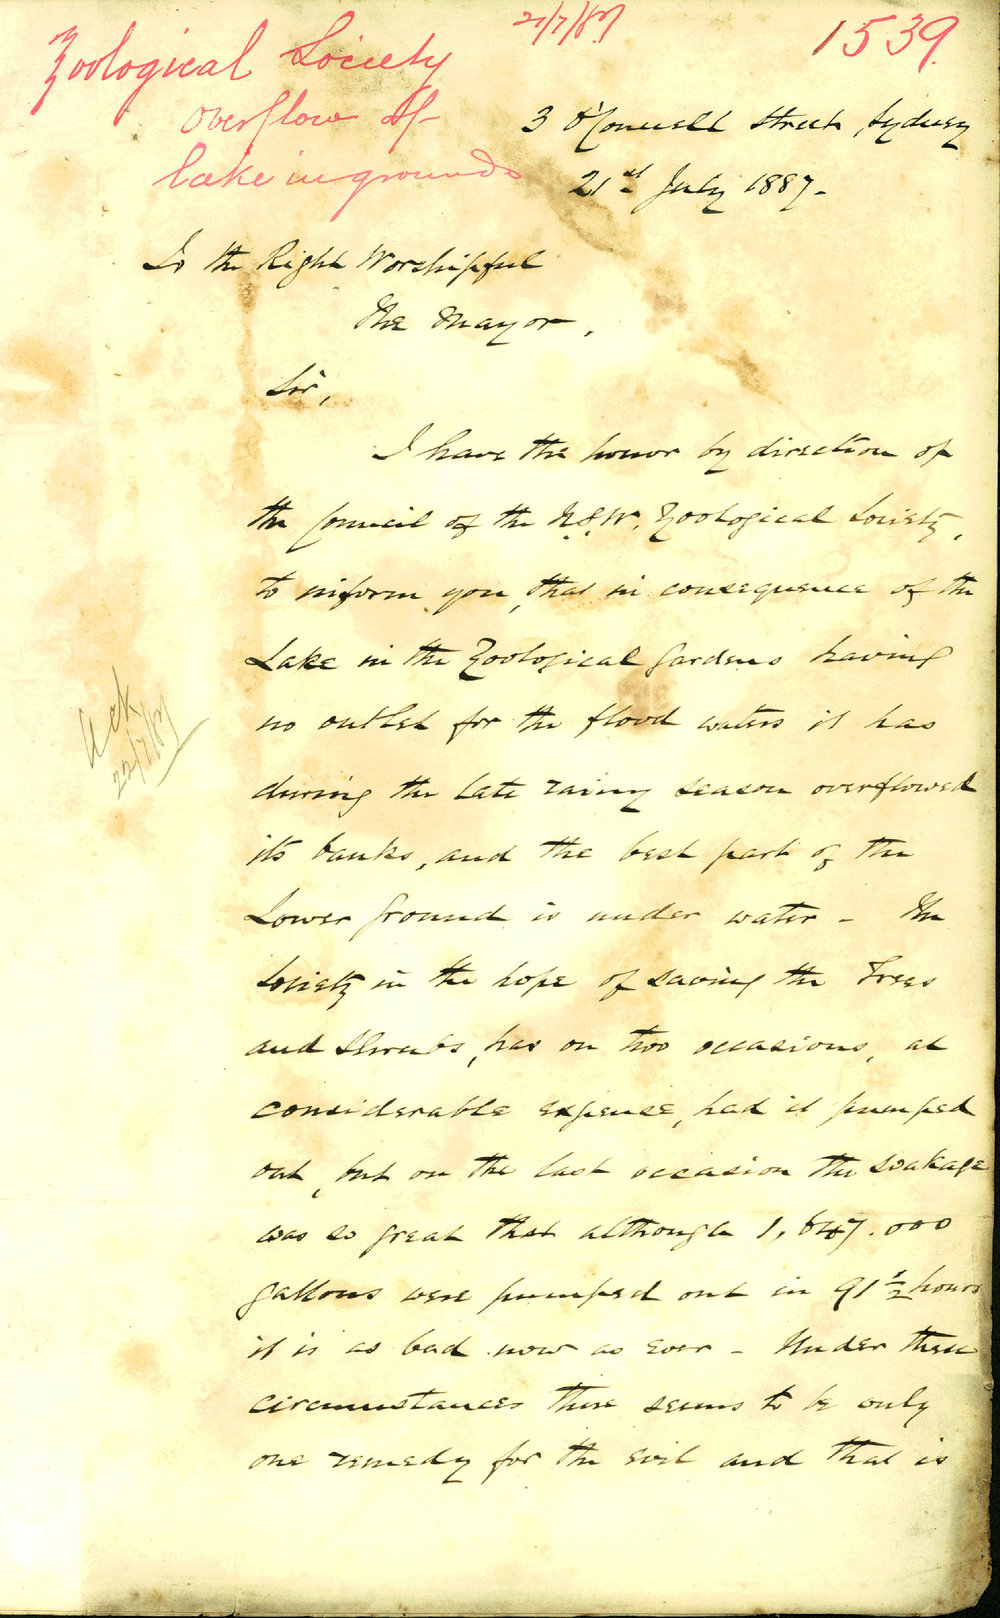 21/7/87
1539.
Zoological Society
overflow of
lake in grounds
3 O'Connell Street, Sydney
21st July 1887-
To the Right Worshipful
The Mayor,
Sir,
I have the honor by direction of
the Council of the N.S.W. Zoological Society,
to inform you, that in consequence of the
Lake in the Zoological Gardens having
no outlet for the flood waters it has
during the late rainy season overflowed
its banks, and the best part of the
Lower Ground is under water - The
Society in the hope of saving the Trees
and Shrubs, has on two occasions, at
considerable expense, had it pumped
out, but on the last occasion the soakage
was so great that although 1,647.000
gallons were pumped out in 91 1/2 hours
it is as bad now as ever - Under these
circumstances there seems to be only
one remedy for the evil and that is
Ack
22/7/87